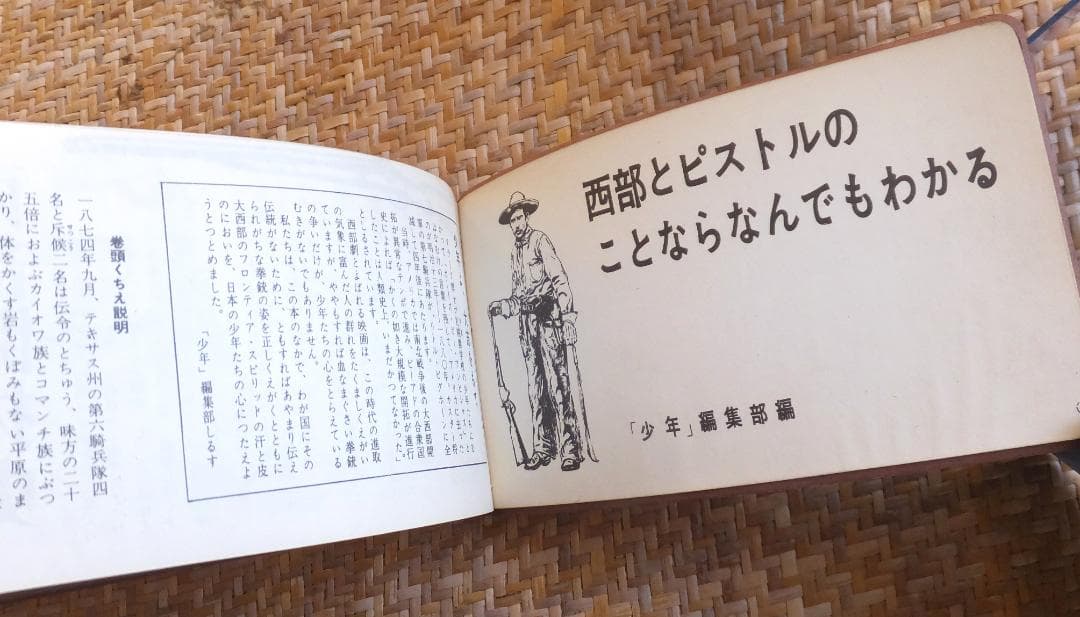 西部とピストルの
ことならなんでもわかる
「少年」編集部編
減して四年後にあたります。
当時、アメリカでは南北戦争後の大西部開
拓が異常なテンポで進み、ビーアドの合衆国
史によれば、「かくの如き大規模な開拓が進行
したことは人類史上、いまだかつてなかった」
としるされています。
西部劇とよばれる映画は、この時代の進取
の気象に富んだ人の群れをたくましくえがい
ていますが、ややもすれば血なまぐさい拳銃
の争いだけが、少年たちの心をとらえている
むきがないでもありません。
私たちは、この本のなかで、わが国にその
伝統がないために、ともすればあやまり伝え
られがちな拳銃の姿を正しくえがくとともに
大西部のフロンティア・スピリッドの汗と皮
のにおいを、日本の少年たちの心につたえよ
うとつとめました。
「少年」編集部しるす
巻頭くちえ説明
一八七四年九月、テキサス州の第六騎兵隊四
名と斥候二名は伝令のとちゅう、味方の二十
五倍におよぶカイオワ族とコマンチ族にぶつ
かり、体をかくす岩もくぼみもない平原のま